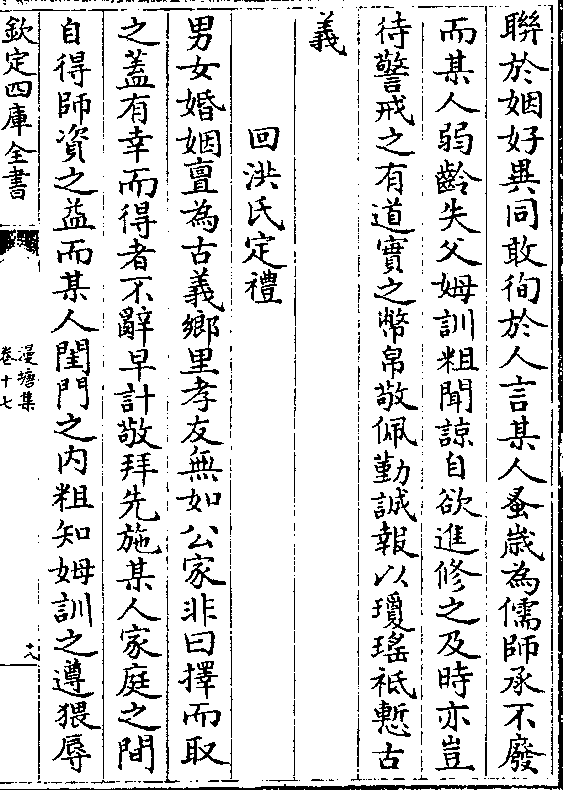 聯於姻好異同敢徇於人言某人蚤嵗為儒師承不廢
而某人弱齡失父姆訓粗聞諒自欲進修之及時亦豈
待警戒之有道實之幣帛敬佩勤誠報以瓊瑤祗慙古
義
回洪氏定禮
男女婚姻亶為古義鄉里孝友無如公家非曰擇而取
之蓋有幸而得者不辭早計敬拜先施某人家庭之間
自得師資之益而某人閨門之内粗知姆訓之遵猥辱
欽定四庫全書
漫塘集
卷十七
十八